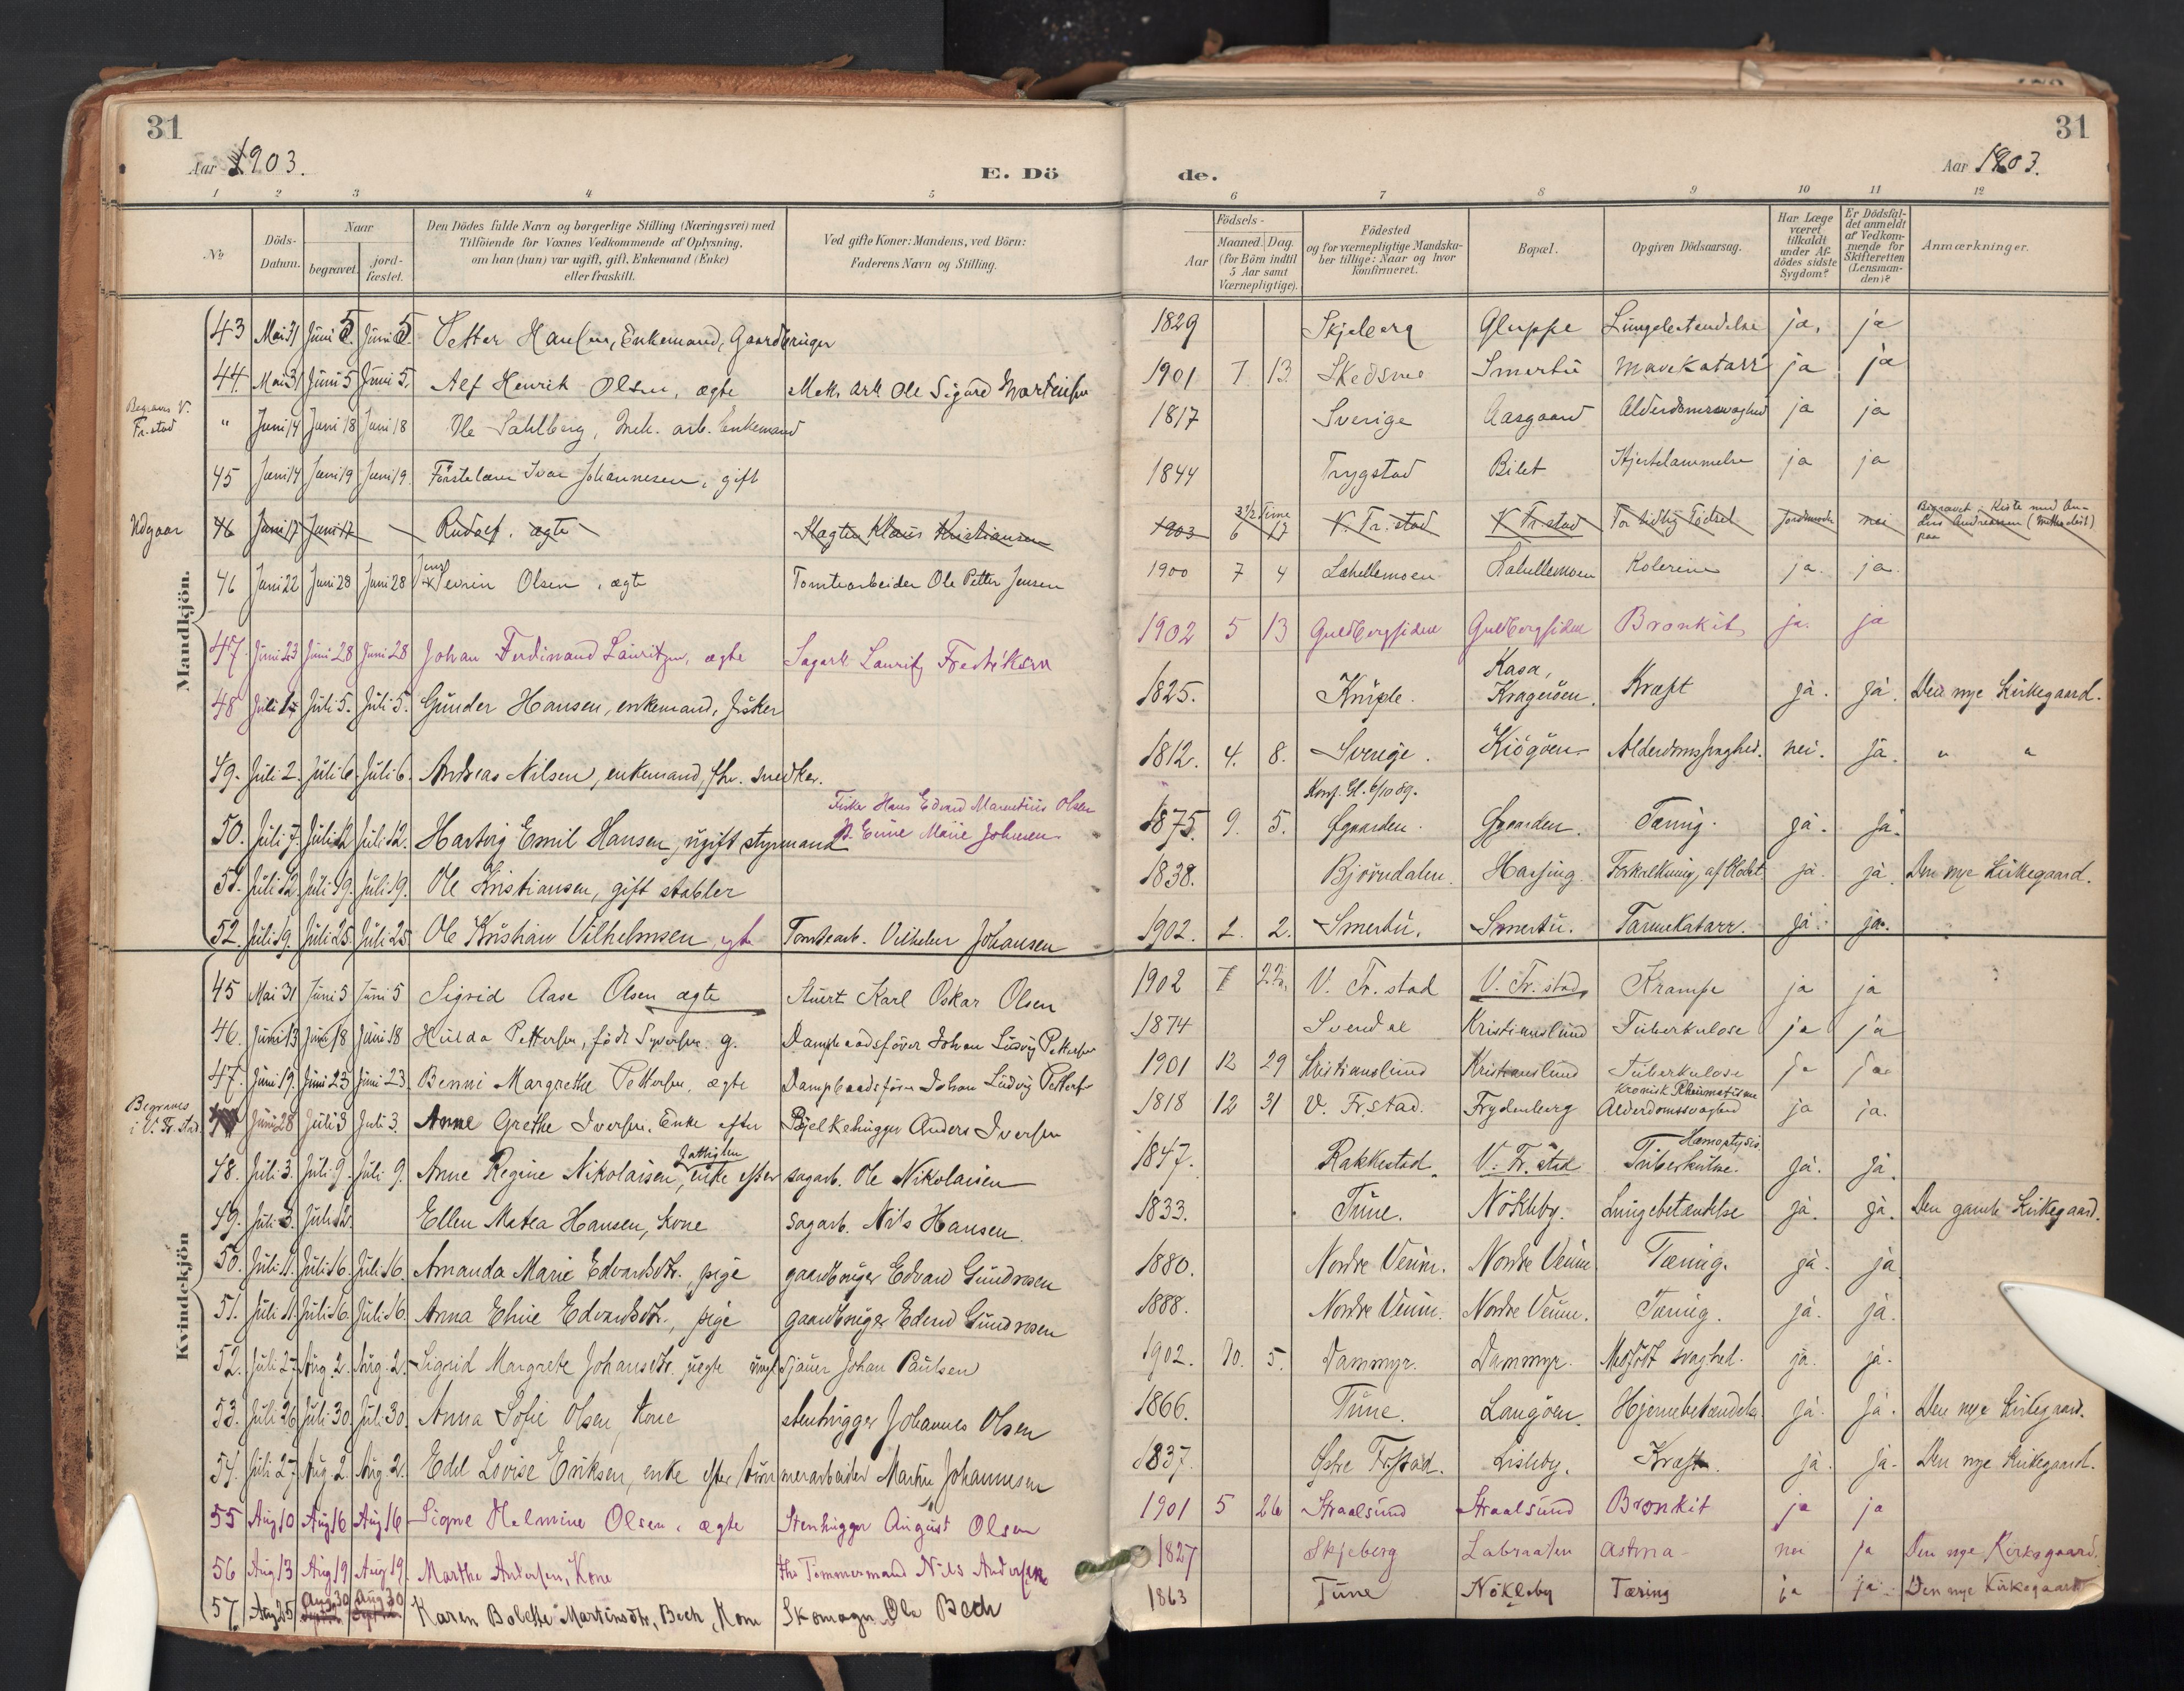 31
31
Aar 1903.
E. Dö
de.
Aar 1903.
1 2 3 4 5 6 7 8 9 10 11 12
No
Döds-Datum.
Naar
begravet.
jord-fæstet.
Den Dödes fulde Navn og borgerlige Stilling (Næringsvei) med
Tilföiende for Voxnes Vedkommende af Oplysning,
om han (hun) var ugift, gift, Enkemand (Enke)
eller fraskilt.
Ved gifte Koner: Mandens, ved Börn:
Faderens Navn og Stilling.
Födsels-
Aar
Maaned. Dag.
(for Börn indtil
5 Aar samt
Værnepligtige).
Födested
og for værnepligtige Mandska-
ber tillige: Naar og hvor
konfirmeret.
Bopæl.
Opgiven Dödsaarsag.
Har Læge
været
tilkaldt
under Af-
dödes sidste
Sygdom?
Er Dödsfal-
det anmeldt
af Vedkom-
mende for
Skifteretten
(Lensman-
den)?
Anmærkninger.
Mandkjön.
43 Mai 31 Juni 5. Juni 5. Petter Hansen, Enkemand, Gaardbruger 1829 Skjeberg Gluppe Lungebetændelse ja, ja
44. Mai 31 Juni 5 Juni 5. Alf Henrik Olsen, ægte Mek. arb. Ole Sigurd Martinsen 1901 7 13. Skedsmo Smertu Mavekatarr ja ja
Begraves V. Fr.stad " Juni 14 Juni 18 Juni 18 Ole Dahlberg, Mek. arb. Enkemand 1817 Sverige Aasgaard Alderdomssvaghed ja ja
45 Juni 14 Juni 19 Juni 19. Förstelærer Ivar Johannesen, gift 1844 Trygstad Bilet Hjertelammelse ja ja
Udgaar 46 Juni 17 Juni 17 Rudolf. ægte Klaus Kristiansen 1903 3 1/2 Time 6 17 V. Fr. stad V. Fr. stad For tidlig Födsel Jordmoder nei Begravet i Kiste med Anders Andreassen
46 Juni 22 Juni 28 Juni 28 Jens Severin Olsen, ægte Tomtearbeider Ole Petter Jensen 1900 7 4 Lahellemoen Lahellemoen Kolerine ja. ja.
47. Juni 23 Juni 28 Juni 28 Johan Ferdinand Lauritzen, ægte Sagarb. Lauritz Fredriksen 1902 5 13 Guldbergsiden Guldbergsiden Bronkit ja. ja
48 Juli 1. Juli 5. Juli 5. Gunder Hansen, enkemand, fisker 1825. Kasa, Kragerøen. Kræft ja. ja. Den nye Kirkegaard.
49. Juli 2. Juli 6. Juli 6. Andreas Nilsen, enkemand, fhv. snedker. 1812. 4. 8. Sverige. Alderdomssvaghed. nei. ja. " "
Fisker Hans Edvard Olsen
Konf. Gl. 6/10 89.
50. Juli 7. Juli 12. Juli 12. Hartvig Emil Hansen, ugift styrmand 1875. 9. 5. Tæring. ja. ja.
51. Juli 12. Juli 19. Juli 19. Ole Kristiansen, gift stabler 1838. Bjørndalen. Forkalkning af ja. ja. Den nye Kirkegaard.
52. Juli 19. Juli 25. Juli 25. Ole Kristian Vilhelmsen ægte Tomtearb. Vilhelm Johansen 1902. 2. Smertu. Smertu. Tarmkatarr. ja. ja.
Kvindekjön
45 Mai 31 Juni 5 Juni 5 Sigrid Aase Olsen ægte Stuert Karl Oskar Olsen 1902 7 22. V. Fr. stad V. Fr. stad Krampe ja ja
46. Juni 13 Juni 18 Juni 18 Hulda Pettersen, född Syversen g. Dampbaadsfører Johan Ludvig Pettersen 1874 Kristianslund Tuberkulose ja ja
47. Juni 19. Juni 23 Juni 23 Benni Margrethe Pettersen, ægte Dampbaadsfører Johan Ludvig Petters 1901 12 29 Kristianslund Kristianslund Tuberkulose ja ja
Begraves i V. Fr. stad. Juni 28 Juli 3 Juli 3. Anne Grethe Iversen. Enke efter Bjelkehugger Anders Iversen 1818 12 31 V. Fr. stad. Frydenberg Kronisk Rheumatisme Alderdomssvaghed ja ja.
48. Juli 3. Juli 9. Juli 9. Anne Regine Nikolaisen, enke efter sagarb. Ole Nikolaisen 1847. Rakkestad. V. Fr. stad Hæmoptysis Tuberkulose. ja. ja
49. Juli 3. Juli 12. Ellen Matea Hansen, kone sagarb. Nils Hansen. 1833. Tune. Nökleby. Lungebetændelse ja. ja. Den gamle Kirkegaard.
50. Juli 11. Juli 16. Juli 16. Amanda Marie Edvardsdtr. pige gaardbruger Edvard Gundersen 1880. Nordre Veum. Nordre Veum Tæring. ja. ja
51. Juli 11. Juli 16. Juli 16. Anna Eline Edvardsdtr., pige gaardbruger Edvard Gundersen 1888. Nordre Veum. Nordre Veum. Tæring. ja. ja.
52. Juli 27. Aug. 2. Aug. 2. Sigrid Margrete Johansdtr. uegte ungk. sjauer Johan Paulsen 1902. 10. 5. Dammyr. Dammyr. Medfödt svaghed. ja. ja.
53. Juli 26. Juli 30. Juli 30. Anna Sofie Olsen, kone stenhugger Johannes Olsen 1866. Tune. Langøen. Hjernebetændelse ja. ja. Den nye Kirkegaard.
54. Juli 27. Aug. 2. Aug. 2. Edel Lovise Eriksen, enke efter tømmerarbeider Martin Johannesen 1837. Østre Fr.stad. Lisleby. Kræft. ja. ja. Den nye Kirkegaard.
55 Aug 10 Aug 16 Aug 16 Signe Helmine Olsen, ægte Stenhugger August Olsen 1901 5 26 Straalsund Straalsund Bronkit ja ja
56 Aug 13 Aug 19 Aug 19. Marthe Andersen, Kone fhv Tømmermand Nils Andersen 1827 Skjeberg Labraaten astma - nei ja Den nye Kirkegaard.
57. Aug 25 Aug 30 Aug 30 Karen Bolette Martinsdtr. Bech, Kone Skomager Ole Bech 1863 Tune Nökleby Tæring ja ja Den nye Kirkegaard